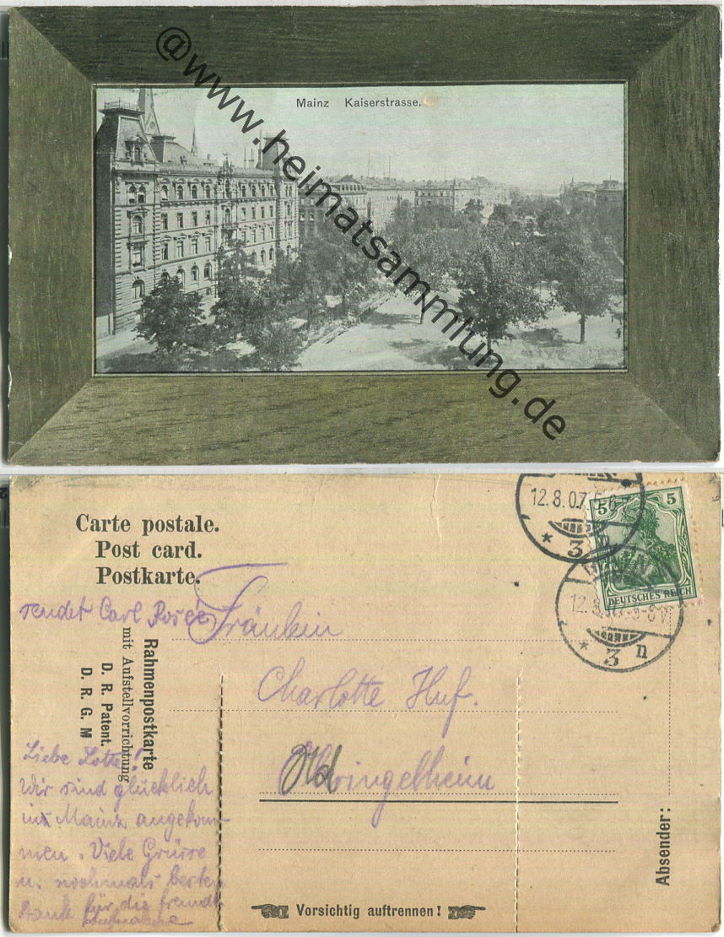 Mainz Kaiserstrasse.
@www.heimatsammlung.de
Carte postale.
Post card.
Postkarte.
12.8.07.
* 3 n
5 5
DEUTSCHES REICH
MAINZ
* 3 n
sendet Carl
Fräulein
Charlotte Huf.
ingelheim
Rahmenpostkarte
mit Aufstellvorrichtung
D. R. Patent.
D. R. G. M
Liebe Lotte!
Wir sind glücklich
in Mainz angekom-
men. Viele Grüsse
u. nochmals besten
Dank für die freundl.
Aufnahme
Absender:
Vorsichtig auftrennen!